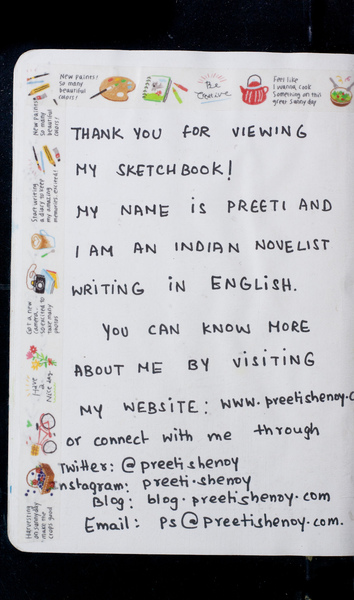 New paints!
so many
beautiful
colors!
Be
Creative
Feel like
I wanna cook
something on this
great sunny day
New paints!
so many
beautiful
colors!
Start writing
a diary to keep
my amazing
memories
Got a new
camera
so excited to
take many
photos
Have
a
Nice day
Harvesting
on sunny day
make me
THANK YOU FOR VIEWING
MY SKETCHBOOK!
MY NAME iS PREETI AND
I AM AN INDIAN NOVELIST
WRITING in ENGLISH.
YOU CAN KNOW MORE
ABOUT ME BY VISITING
MY WEBSITE: www.preetishenoy.
or connect with me through
Twitter: @preetishenoy
nstagram: preeti.shenoy
Blog: blog.preetishenoy.com
Email: ps@preetishenoy.com.